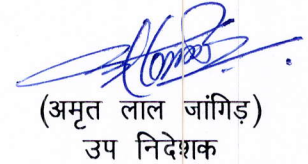 (अमृत लाल जांगिड़)
उप निदेशक